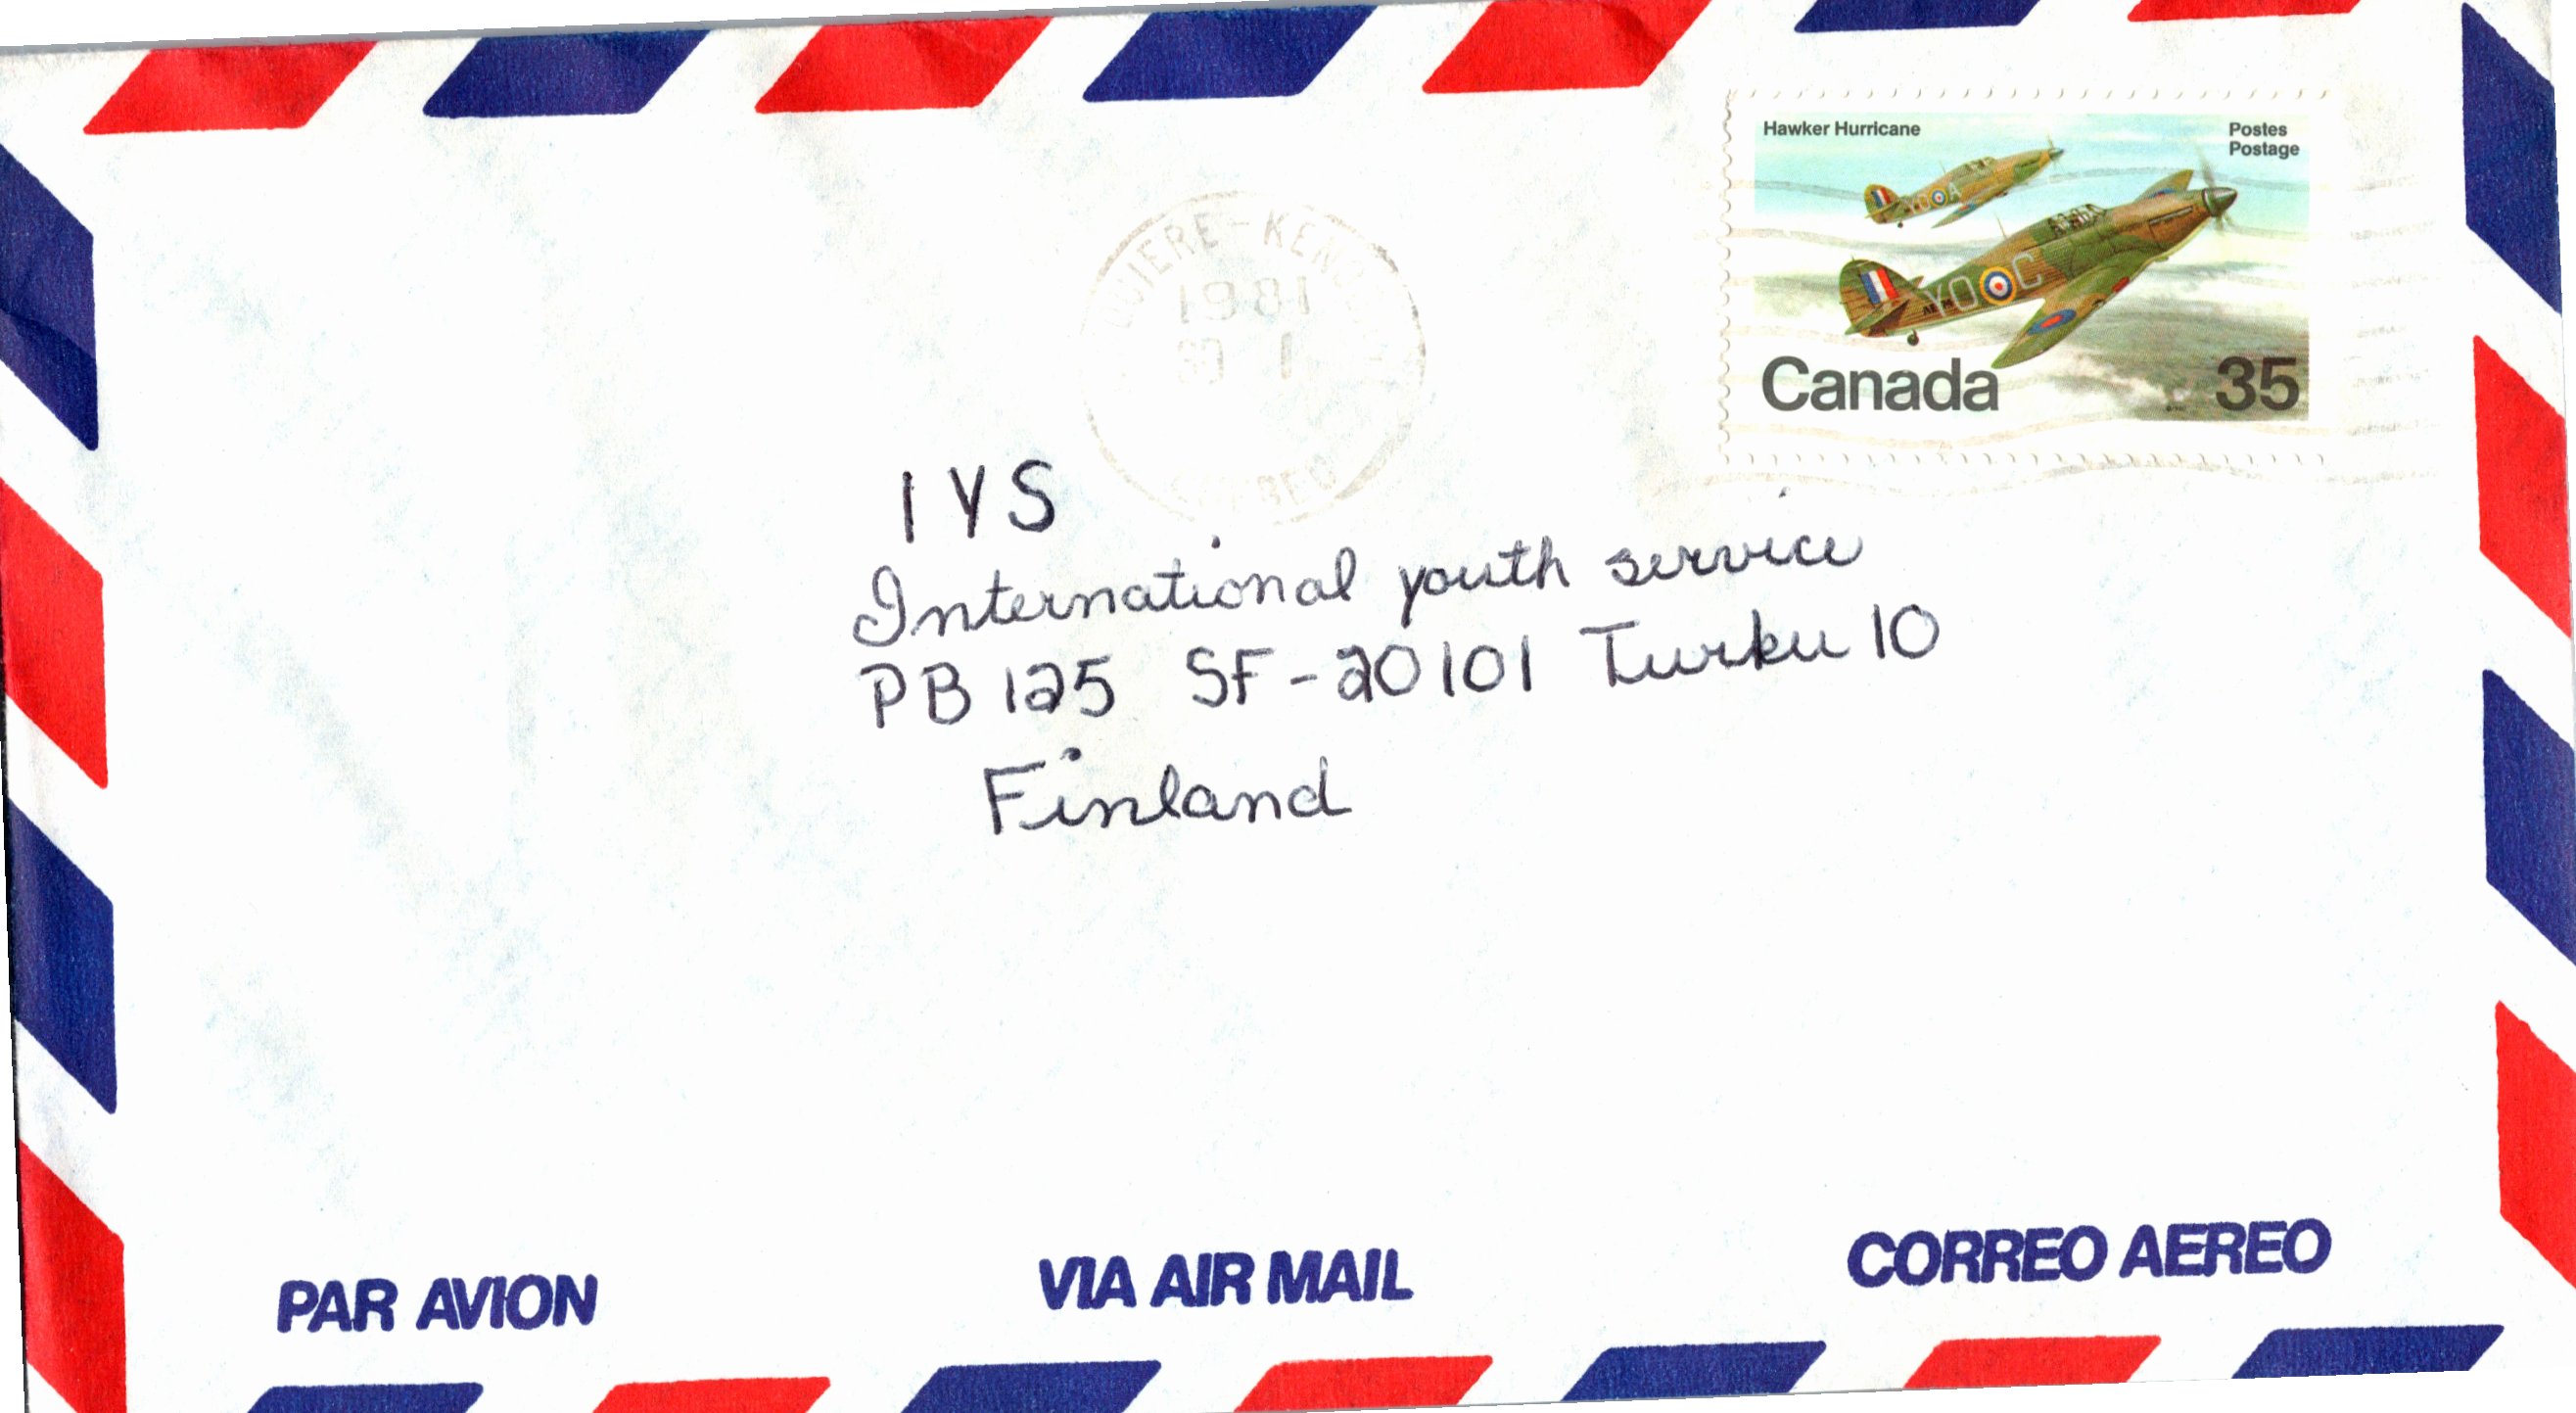 Hawker Hurricane
Postes
Postage
YO A
YO C
Canada
35
1981
IYS
International youth service
PB 125 SF-20101 Turku 10
Finland
PAR AVION
VIA AIR MAIL
CORREO AEREO